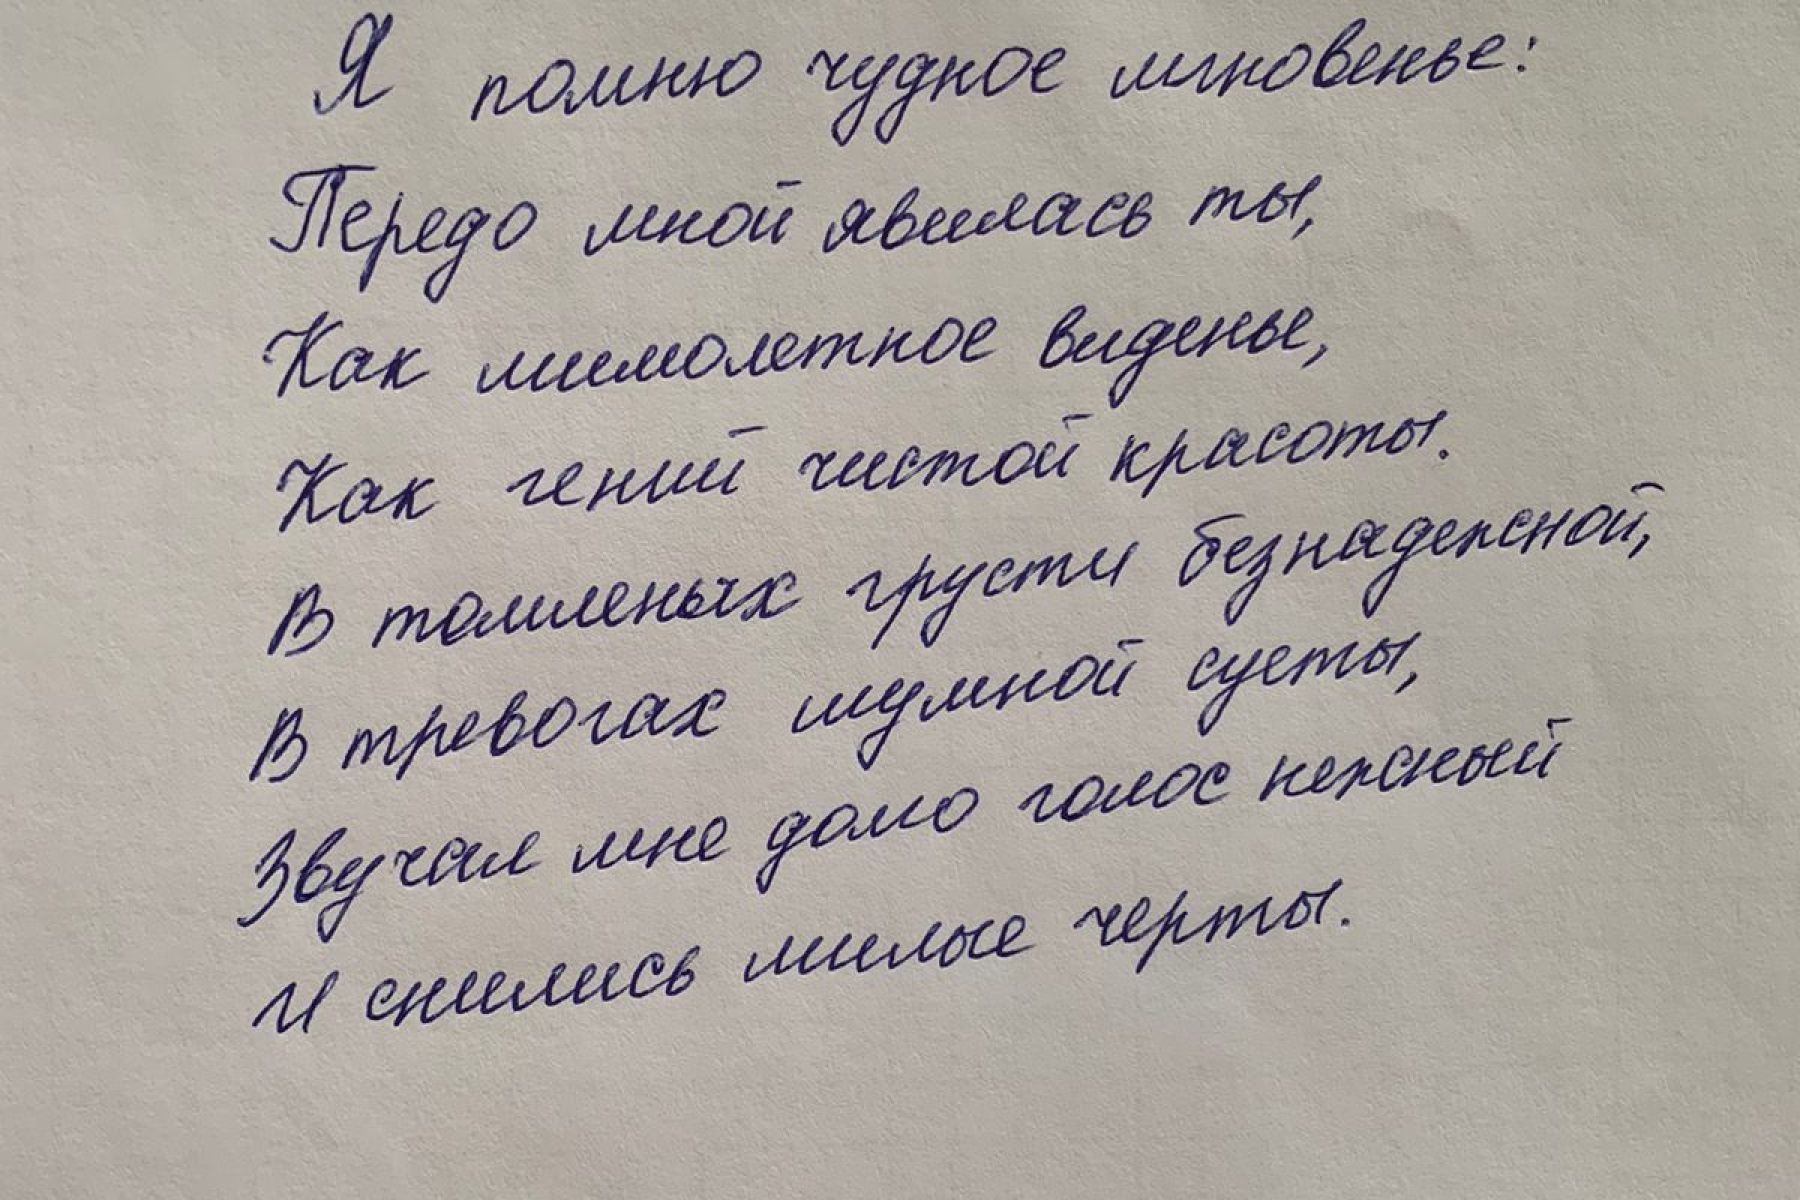 Я помню чудное мгновенье:
Передо мной явилась ты,
Как мимолетное виденье,
Как гений чистой красоты.
В томленьях грусти безнадежной,
В тревогах шумной суеты,
Звучал мне домо голос нежный
И снились милые черты.